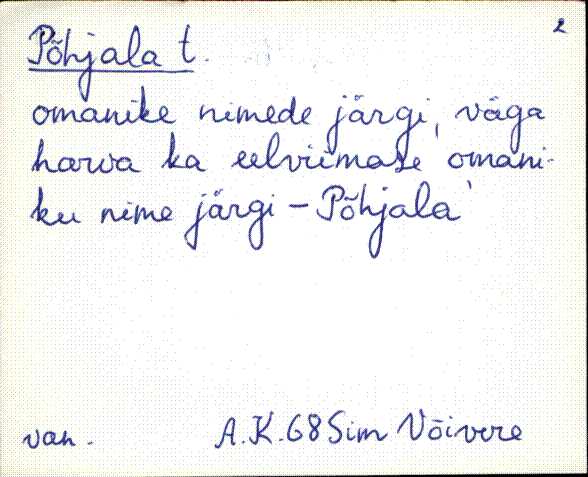 2
Põhjala t.
omanike nimede järgi, väga
harva ka eelviimase omani-
ku nime järgi - Põhjala'
van. A.K.68 Sim Võivere